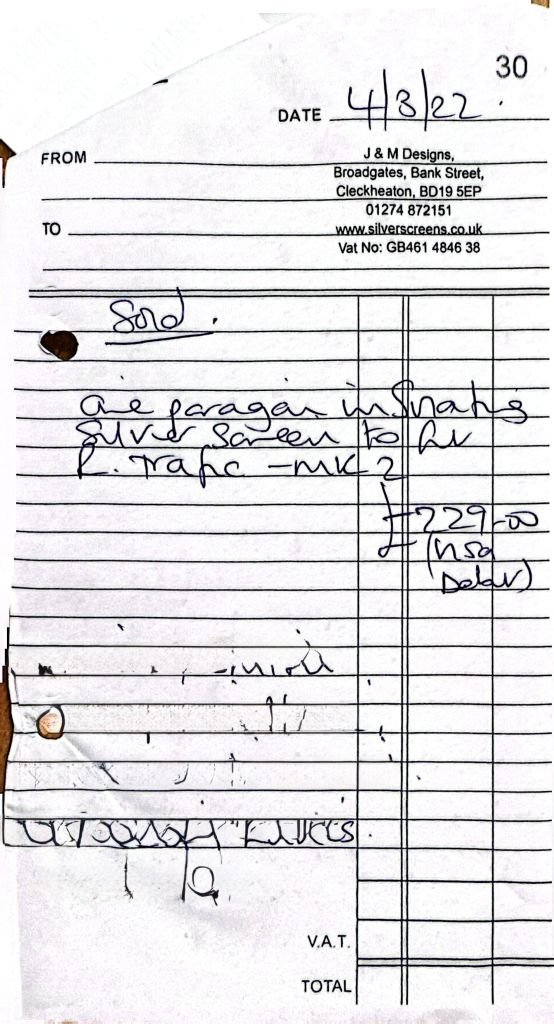 30
DATE 4/3/22.
FROM
J & M Designs,
Broadgates, Bank Street,
Cleckheaton, BD19 5EP
01274 872151
TO
www.silverscreens.co.uk
Vat No: GB461 4846 38
Sold.
One paragon insulating
Silver Screen to fit
R. Trafic - MK 2
£229-00
(visa
V.A.T.
TOTAL